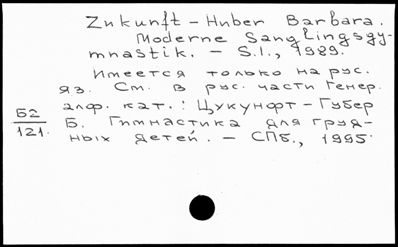 Zukunft - Huber Barbara.
Moderne Sanglingsgy-
mnastik. - S.l., 1989.
Имеется только на рус.
яз. См. в рус. части Генер.
алф. кат.: Цукунфт - Губер
Б2
Б. Гимнастика для груд-
121.
ных детей. - СПб., 1995.